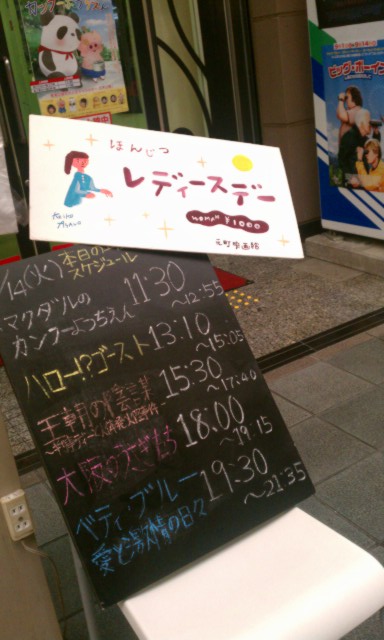 ほんじつ
レディースデー
WOMAN ¥1000
元町映画館
14(火)
本日の
スケジュール
マクダルの
カンフーようちえん
11:30
~12:55
ハロー!?ゴースト
13:10
~15:05
王朝の陰謀
15:30
~17:40
大阪のうさぎたち
18:00
~19:15
ベティ・ブルー
愛と激情の日々
19:30
~21:35